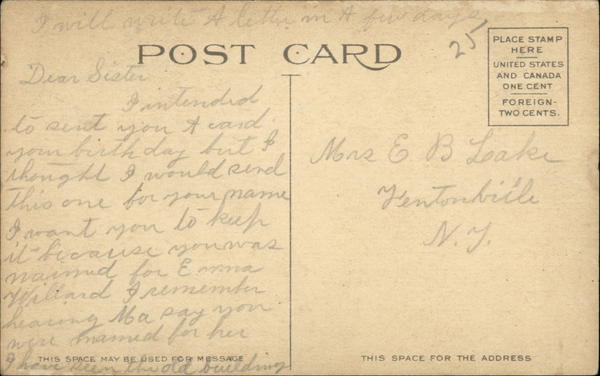 I will write A letter in A few days
POST CARD
25
PLACE STAMP
HERE
UNITED STATES
AND CANADA
ONE CENT
FOREIGN-
TWO CENTS.
Dear Sister
I intended
to sent you A card
your birthday but I
thought I would send
this one for your name
I want you to keep
it because you was
named for Emma
Willard I remember
hearing Ma say you
were named for her
THIS SPACE MAY BE USED FOR MESSAGE
I have seen the old building
Mrs E B Lake
Fentonville
N. Y.
THIS SPACE FOR THE ADDRESS